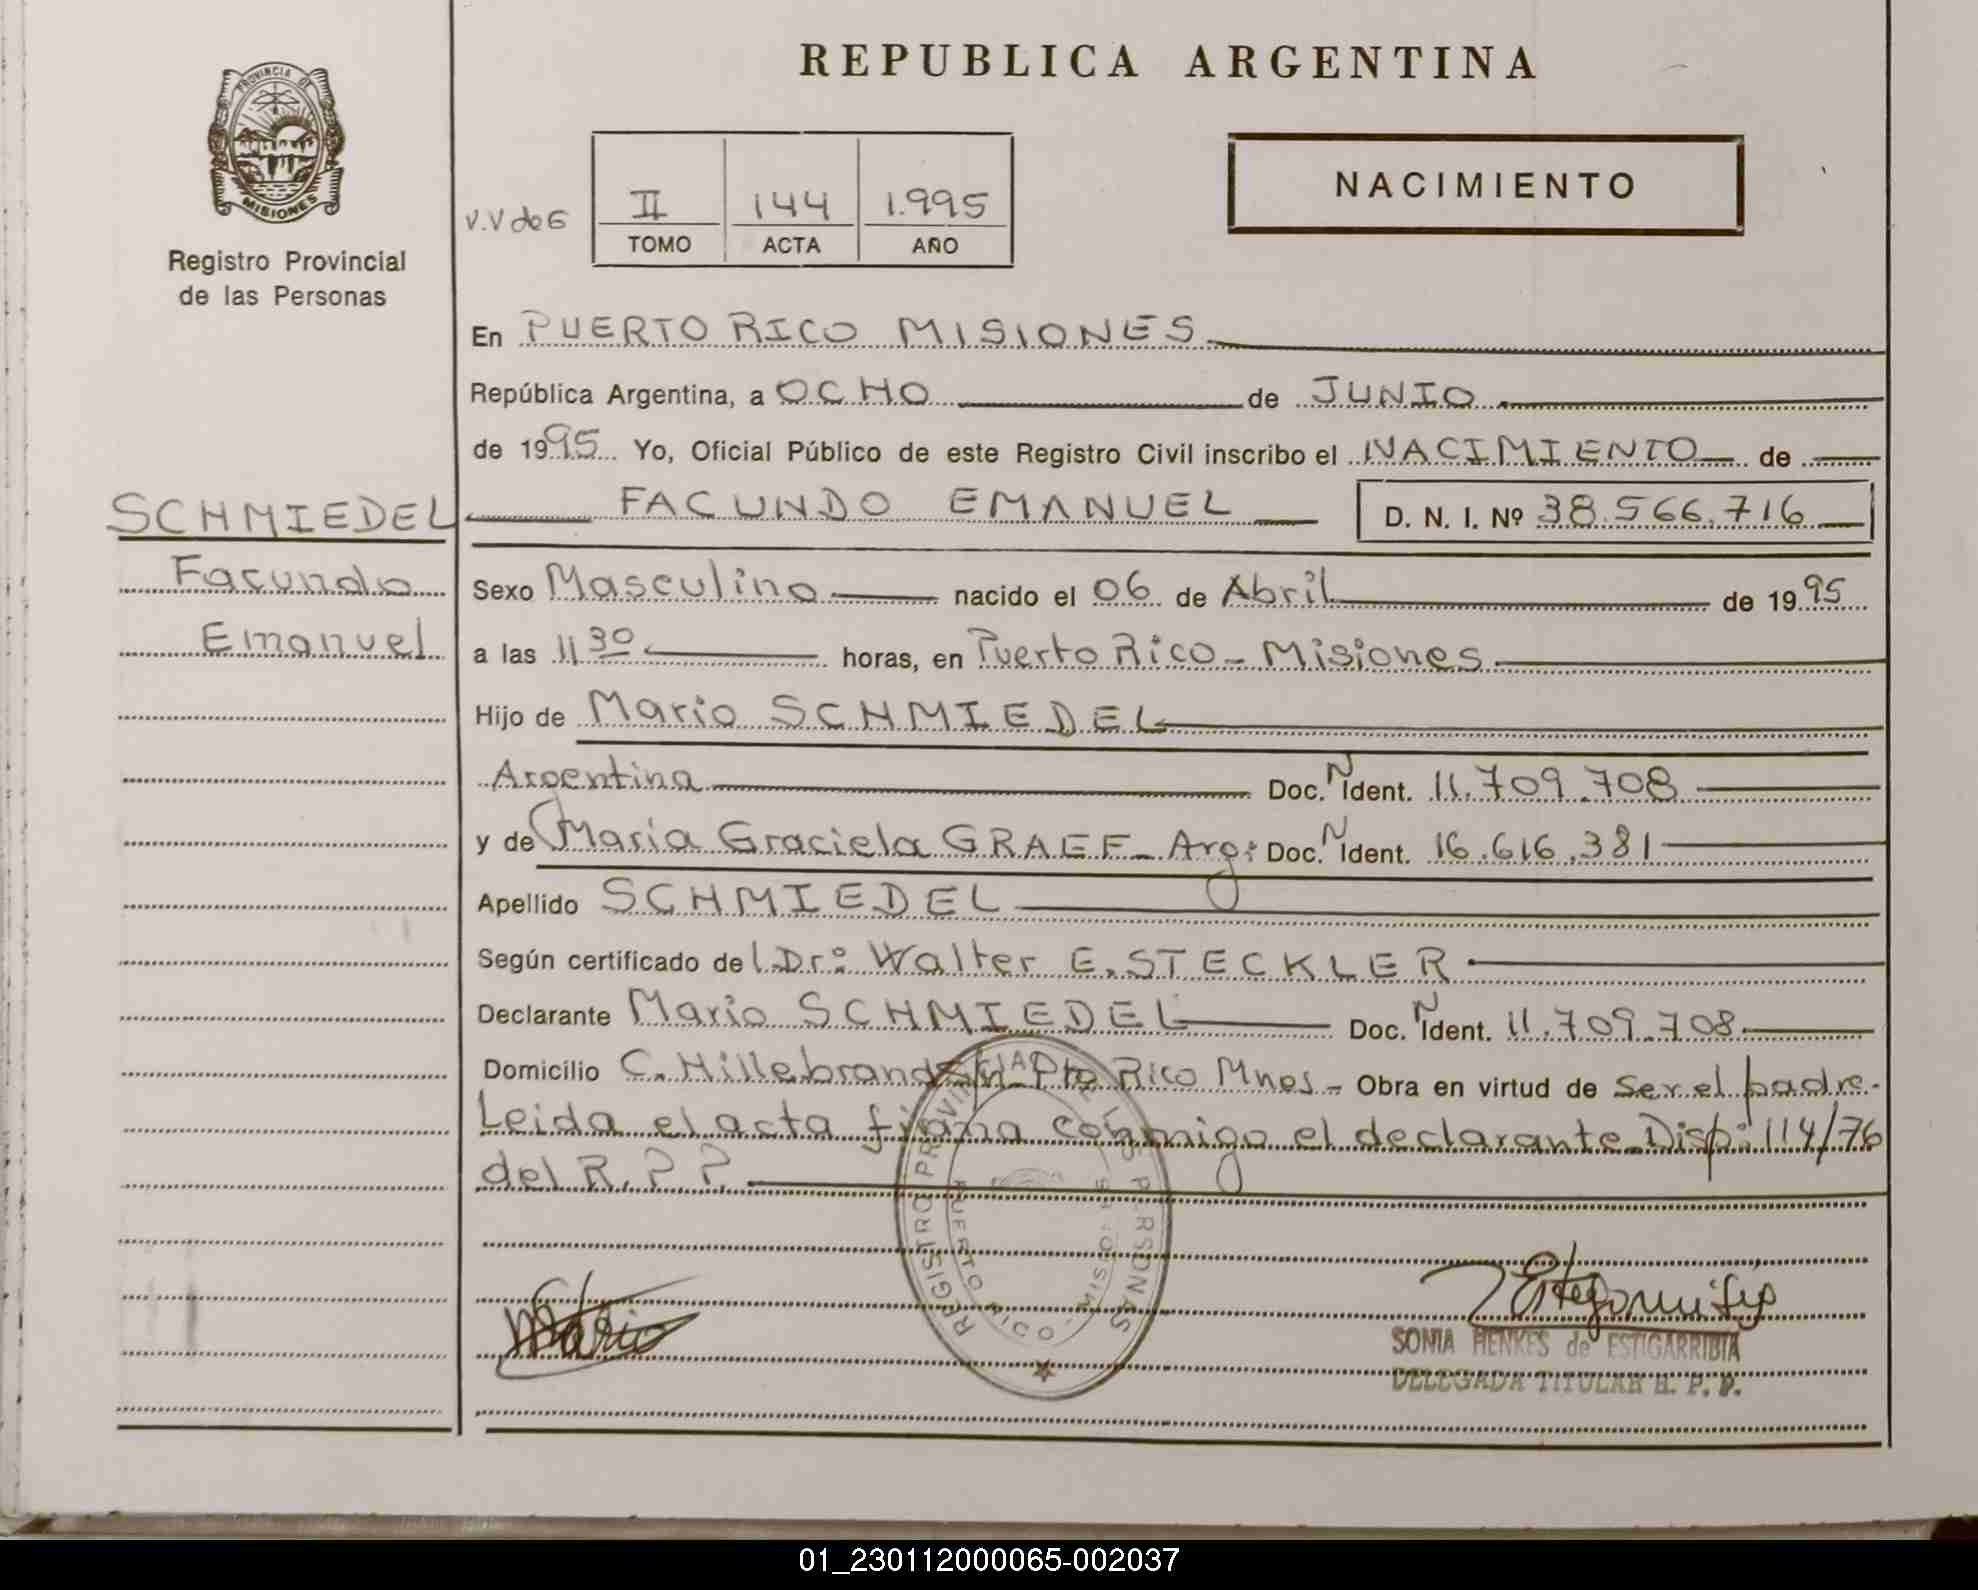 REPUBLICA ARGENTINA
PROVINCIA DE
MISIONES
Registro Provincial
de las Personas
NACIMIENTO
V.V de G
II 144 1.995
TOMO ACTA AÑO
En PUERTO RICO MISIONES
República Argentina, a OCHO de JUNIO
de 1995 Yo, Oficial Público de este Registro Civil inscribo el NACIMIENTO de
SCHMIEDEL FACUNDO EMANUEL D. N. I. Nº 38.566.716
Facundo
Emanuel
Sexo Masculino nacido el 06 de Abril de 1995
a las 11 30 horas, en Puerto Rico - Misiones
Hijo de Mario SCHMIEDEL
Argentina Doc. N Ident. 11.709.708
y de Maria Graciela GRAEF - Arg: Doc. N Ident. 16.616.381
Apellido SCHMIEDEL
Según certificado del Dr: Walter E. STECKLER
Declarante Mario SCHMIEDEL Doc. N Ident. 11.709.708
Domicilio C. Hillebrand s/n - Pto Rico Mnes - Obra en virtud de Ser el padre.-
Leida el acta firma conmigo el declarante. Disp: 114/76
del R.P.P.
REGISTRO PROVINCIAL DE LAS PERSONAS
PUERTO RICO - MISIONES
Mario
SONIA HENKES de ESTIGARRIBIA
DELEGADA TITULAR R. P. P.
01_230112000065-002037